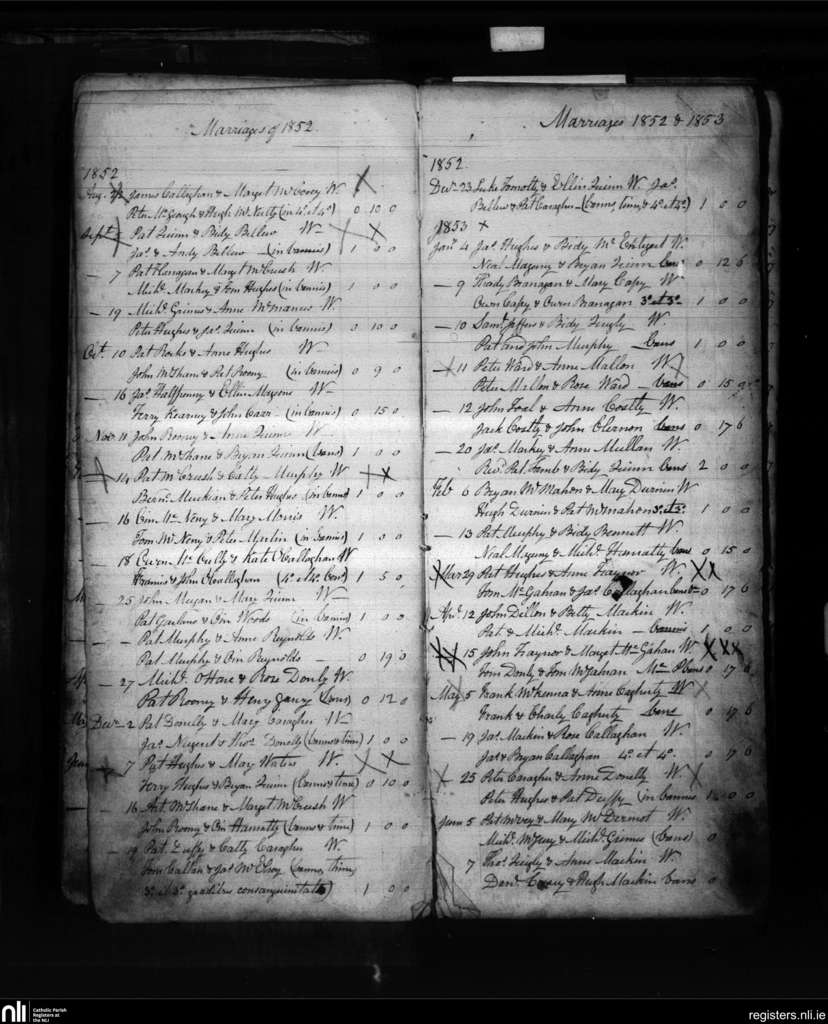 Marriages of 1852.
1852
Aug. James Callaghan & Marget McCovey W
Peter McGeogh & Hugh McNulty (in 4°. et 4°.) 0 10 0
Sept. Pat Quinn & Bidy Bellew W
Jas. & Andy Bellew (in bannis) 1 0 0
— 7 Pat Flanagan & Margt McCresh W.
Michl. Markey & Tom Hughes (in bannis) 1 0 0
— 19 Michl. Grimes & Anne McManus W.
Peter Hughes & Jas. Quinn (in bannis) 0 10 0
Oct. 10 Pat Rocks & Anne Hughes W
John McShane & Pat Roony (in bannis) 0 9 0
— 16 Jas. Halfpenny & Ellen W
Terry Kearney & John Carr (in bannis) 0 15 0
Nov 11 John Rooney & Anne Quinn W
Pat McShane & Bryan Quinn (bans) 1 0 0
14 Pat McCresh & Catty Murphy W
Bernd. & Peter Hughes (in bans) 1 0 0
— 16 Mc Neny & Mary Morris W.
Tom McNeny & Peter (in bannis) 1 0 0
— 18 Owen McCully & Kate O'Callaghan W
Francis & John O'Callaghan (4°. et 4°. bans) 1 5 0
— 25 John Megan & Mary Quinn W
Pat Garland & Woods (in bannis) 1 0 0
— — Pat Murphy & Anne Reynolds W.
Pat Murphy & Reynolds — 0 19 0
— 27 Michl. O'Hare & Rose Donly W
Pat Rooney & Henry (bans) 0 12 0
Decr. 2 Pat Donelly & Mary Caragher W
Jas. Nugent & Thos. Donelly (bannis & time) 1 0 0
7 Pat Hughes & Mary Waters W.
Terry Hughes & Bryan Quinn (bannis & time) 0 10 0
16 Art McShane & Marget McCresh W
John Roony & Hanratty (bannis & time) 1 0 0
19 Pat Duffy & Catty Caragher W.
Tom Callan & Jas. McElroy (bannis, time,
3°. et 3°. gradibus consanguinitatis) 1 0 0
Marriages 1852 & 1853
1852.
Decr. 23 Luke & Ellen Quinn W. Jas.
Bellew & Pat Caragher (bannis, time, & 4°. et 4°.) 1 0 0
1853
Jany. 4 Jas. Hughes & Bidy McEnteget W.
Neal & Bryan Quinn bans 0 12 6
— 9 Thady Banagan & Mary Capy W.
Owen Capy & Owen Banagan 3°. et 3°. 1 0 0
— 10 Saml. Jeffers & Bidy W.
Pat and John Murphy — bans 1 0 0
11 Peter Ward & Anne Mallon W
Peter Mallon & Rose Ward — bans 0 15
— 12 John Foal & Anne Costly W.
Jack Costly & John Clernon bans 0 17 6
— 20 Jas. Markey & Anne Mullan W.
Revd. Pat. Lamb & Bidy Quinn bans 2 0 0
Feb 6 Bryan McMahon & Mary Durnin W
Hugh Durnin & Pat McMahon 3°. et 3°. 1 0 0
— 13 Pat Murphy & Bidy Bennett W.
Neal & Michl. Hanratty bans 0 15 0
Mar 29 Pat Hughes & Anne Traynor W.
Tom McGahan & Jas. Callaghan bans 0 17 6
Apr. 12 John Dillon & Betty Mackin W.
Pat & Michl. Mackin — bannis 1 0 0
15 John Traynor & Marget McGahan W.
Tom Donly & Tom McGahan bans 0 17 6
May 5 Frank McKenna & Anne W
Frank & Charly bans 0 17 6
— 19 Jas. Mackin & Rose Callaghan W.
Jas & Bryan Callaghan 4°. et 4°. 0 17 6
— 25 Peter Caragher & Anne Donelly W.
Peter Hughes & Pat Duffy (in bannis 1 0 0
June 5 Pat McVey & Mary McDermot W.
Michl. & Michl. Grimes (bans) 0
7 Thos. & Anne Mackin W.
Danl. & Hugh Mackin bans 0
nli
Catholic Parish
Registers at
the NLI
registers.nli.ie